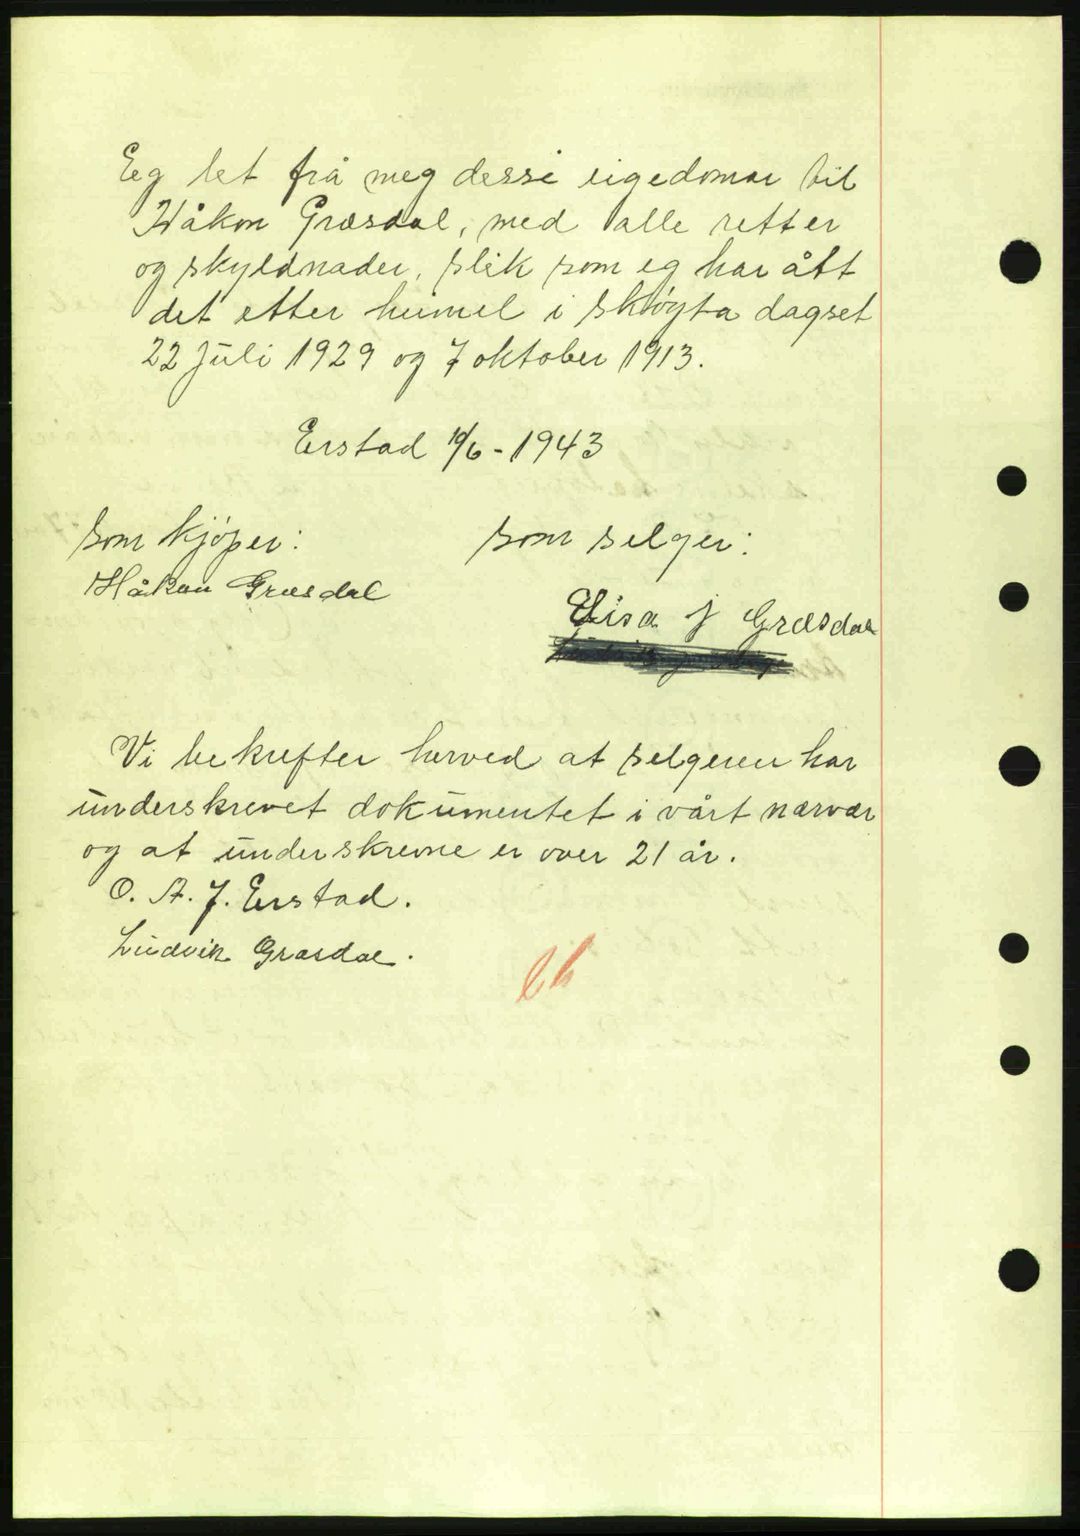 Eeg let frå meg desse eigedomar til
Håkon Græsdal, med alle retter
og skyldnader, slik som eg har ått
det etter heimel i skøyta dagset
22 Juli 1929 og 7 oktober 1913.
Eerstad 10/6 - 1943
Som kjøper:
Som selger:
Håkon Græsdal
Elisa J Græsdal
Vi bekrefter herved at selgeren har
underskrevet dokumentet i vårt nærvær
og at underskrevne er over 21 år.
O. A. J. Eerstad.
Ludvik Græsdal.